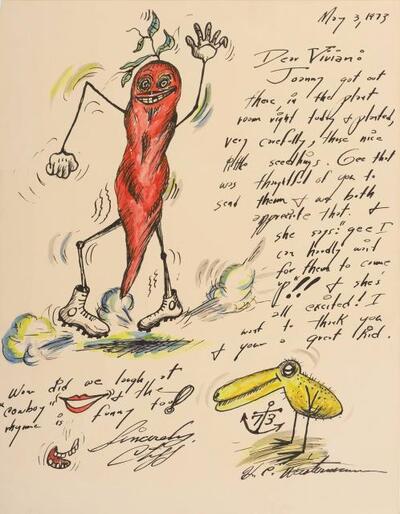 May 3, 1973
Dear Viviani
Joanny got out
there in the plant
room right today & planted,
very carefully, those nice
little seedlings. Gee that
was thoughtful of you to
send them & we both
appreciate that. &
she says: "gee I
can hardly wait
for them to come
up"!! & she's
all excited! I
want to thank you
& your a great kid.
Wow did we laugh at
"cowboy" & the
rhyme is funny too!
Sincerely
Cliff
73
H. C. Westermann